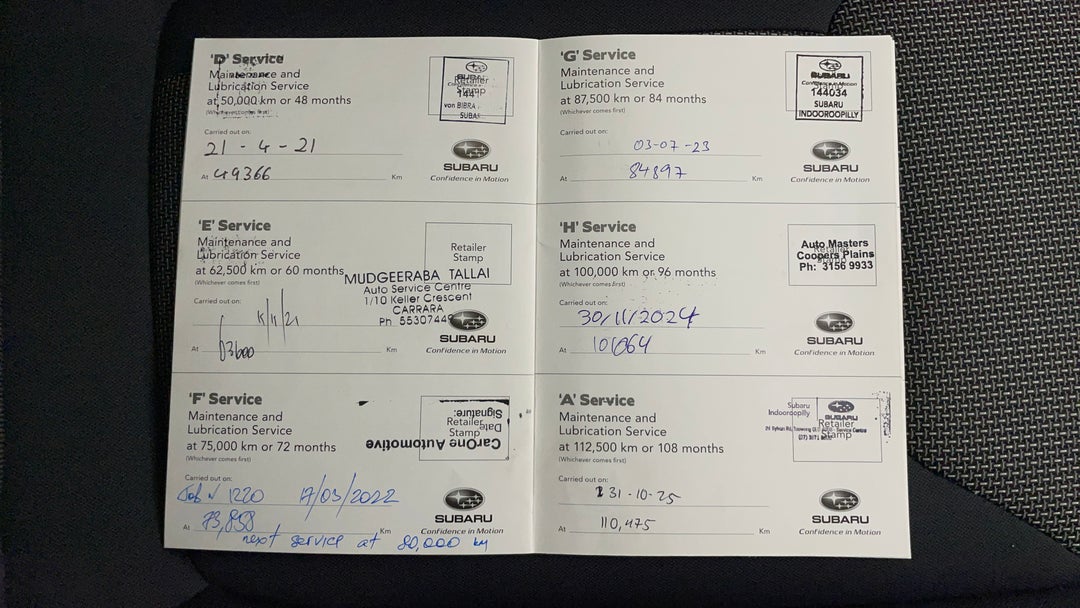 'D' Service
Maintenance and
Lubrication Service
at 50,000 km or 48 months
(Whichever comes first)
Retailer
Stamp
SUBARU
144
von BIBRA
SUBA
Carried out on:
21 - 4 - 21
At 49366 Km
SUBARU
Confidence in Motion
'E' Service
Maintenance and
Lubrication Service
at 62,500 km or 60 months
(Whichever comes first)
Retailer
Stamp
MUDGEERABA TALLAI
Auto Service Centre
1/10 Keller Crescent
CARRARA
Ph 55307449
Carried out on:
At Km
SUBARU
Confidence in Motion
'F' Service
Maintenance and
Lubrication Service
at 75,000 km or 72 months
(Whichever comes first)
Retailer
Stamp
CarOne Automotive
Date
Signature:
Carried out on:
Job N 1220 17/03/2022
At 73,858 Km
next service at 80,000 km
SUBARU
Confidence in Motion
'G' Service
Maintenance and
Lubrication Service
at 87,500 km or 84 months
(Whichever comes first)
SUBARU
Confidence in Motion
144034
SUBARU
INDOOROOPILLY
Carried out on:
03-07-23
At 84897 Km
SUBARU
Confidence in Motion
'H' Service
Maintenance and
Lubrication Service
at 100,000 km or 96 months
(Whichever comes first)
Retailer
Auto Masters
Coopers Plains
Ph: 3156 9933
Carried out on:
30/11/2024
At 101064 Km
SUBARU
Confidence in Motion
'A' Service
Maintenance and
Lubrication Service
at 112,500 km or 108 months
(Whichever comes first)
Subaru
Indooroopilly
SUBARU
Retailer
Stamp
Service Centre
Carried out on:
31-10-25
At 110,475 Km
SUBARU
Confidence in Motion